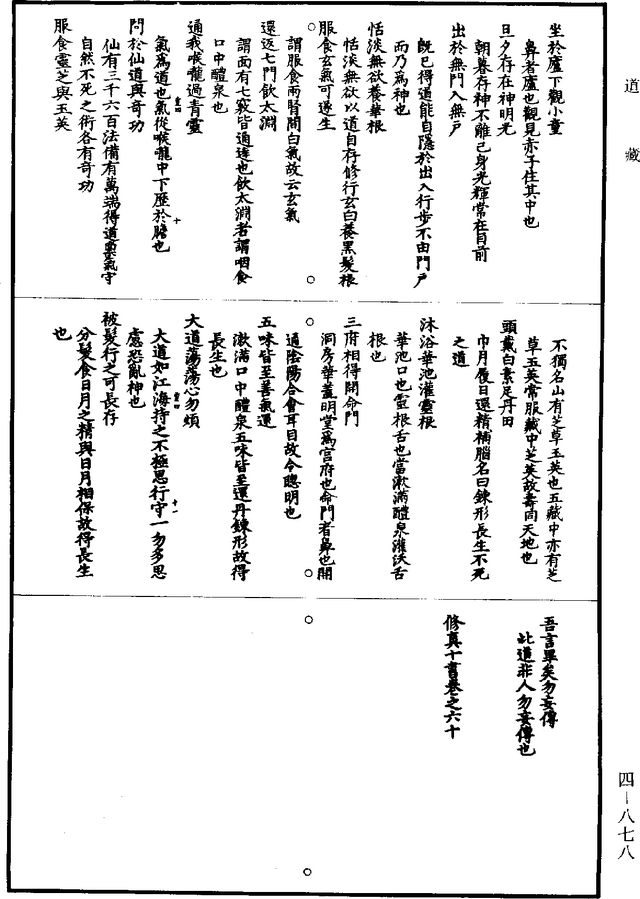 道藏
坐於廬下觀小童
鼻者廬也觀見赤子住其中也
旦夕存在神明光
朝暮存神不離己身光輝常在目前
出於無門入無戶
既已得道能自隱於出入行步不由門戶
而乃為神也
恬淡無欲養華根
恬淡無欲以道自存修行玄白養黑髮根
服食玄氣可遂生
謂服食兩腎間白氣故云玄氣
還返七門飲太淵
謂面有七竅皆通達也飲太淵者謂咽食
口中醴泉也
通我喉嚨過青靈
氣為道也氣從喉嚨中下歷於膽也
問於仙道與奇功
仙有三千六百法備有萬端得道稟氣守
自然不死之術各有奇功
服食靈芝與玉英
不獨名山有芝草玉英也五藏中亦有芝
草玉英常服藏中芝英故壽同天地也
頭戴白素足丹田
巾月履日還精補腦名曰鍊形長生不死
之道
沐浴華池灌靈根
華池口也靈根舌也當漱滿醴泉灌沃舌
根也
三府相得開命門
洞房華蓋明堂為宮府也命門者鼻也開
通陰陽合會耳目故令聰明也
五味皆至善氣還
漱滿口中醴泉五味皆至還丹鍊形故得
長生也
大道蕩蕩心勿煩
大道如江海持之不極思行守一勿多思
慮恐亂神也
被髮行之可長存
分髮食日月之精與日月相保故得長生
也
吾言畢矣勿妄傳
此道非人勿妄傳也
修真十書卷之六十
四－八七八